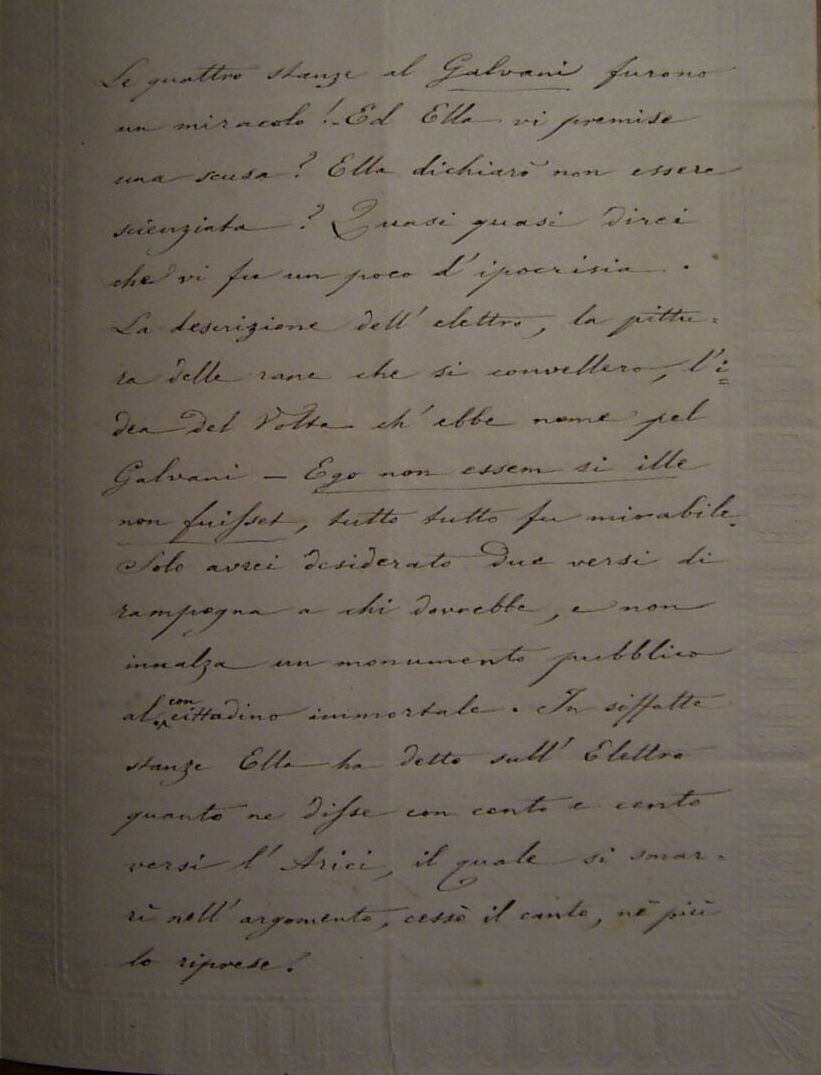 Le quattro stanze al Galvani furono
un miracolo! Ed Ella vi premise
una scusa? Ella dichiarò non essere
scienziata? Quasi quasi direi
che vi fu un poco d'ipocrisia.
La descrizione dell'elettro, la pittu=
ra delle rane che si convellero, l'i=
dea del Volta ch'ebbe nome pel
Galvani — Ego non essem si ille
non fuisset, tutto tutto fu mirabile.
Solo avrei desiderato due versi di
rampogna a chi dovrebbe, e non
innalza un monumento pubblico
al concittadino immortale. In siffatte
stanze Ella ha detto sull'Elettro
quanto ne disse con cento e cento
versi l'Arici, il quale si smar=
rì nell'argomento, cessò il canto, nè più
lo riprese.